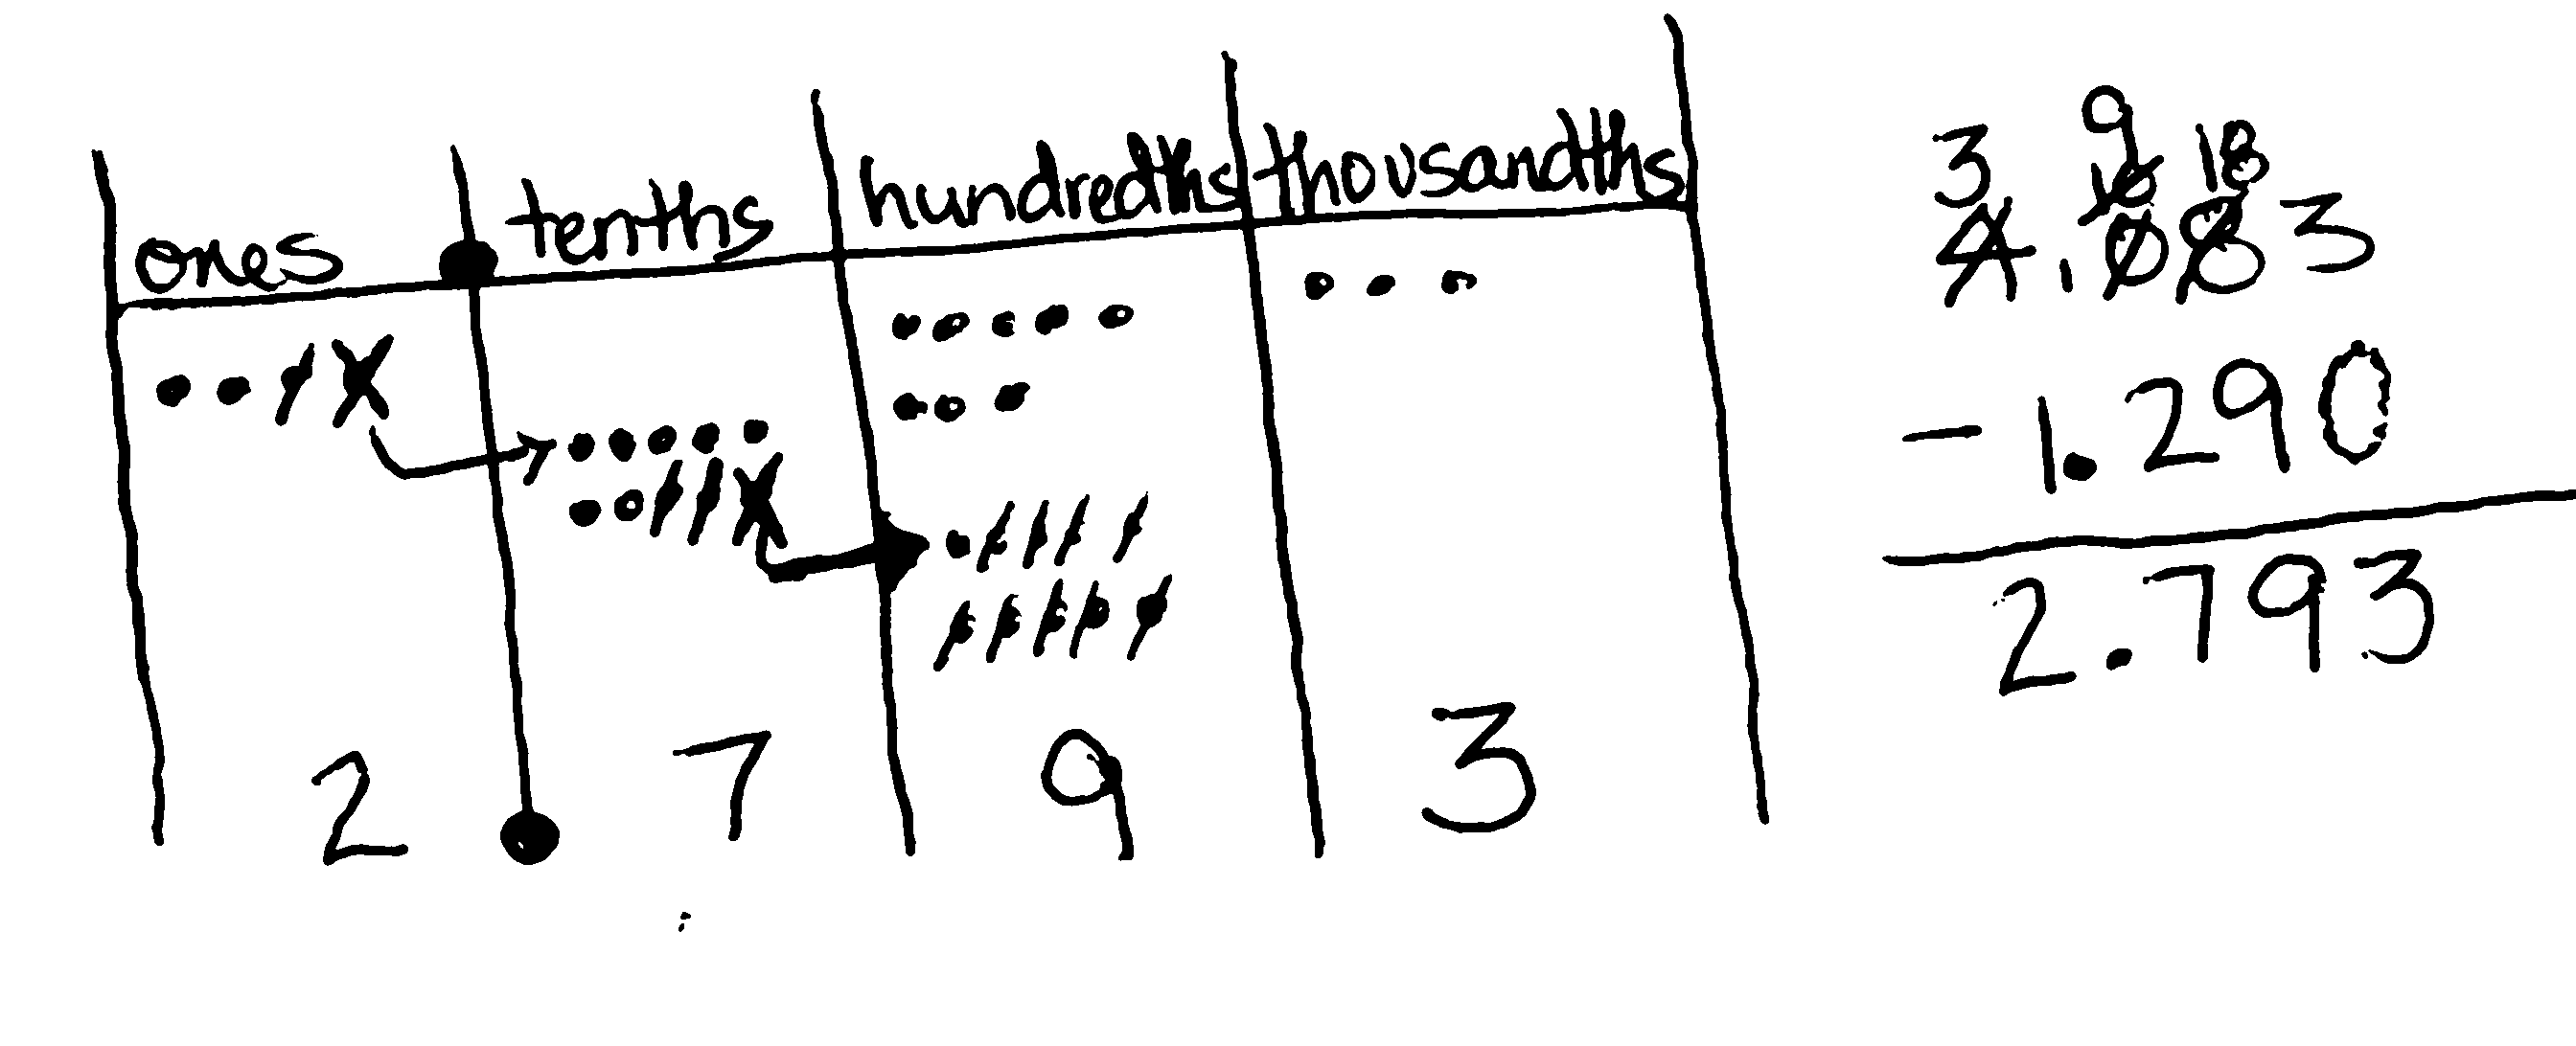 ones tenths hundredths thousandths
2 . 7 9 3
3 9
10 18
4.083
- 1.290
2.793